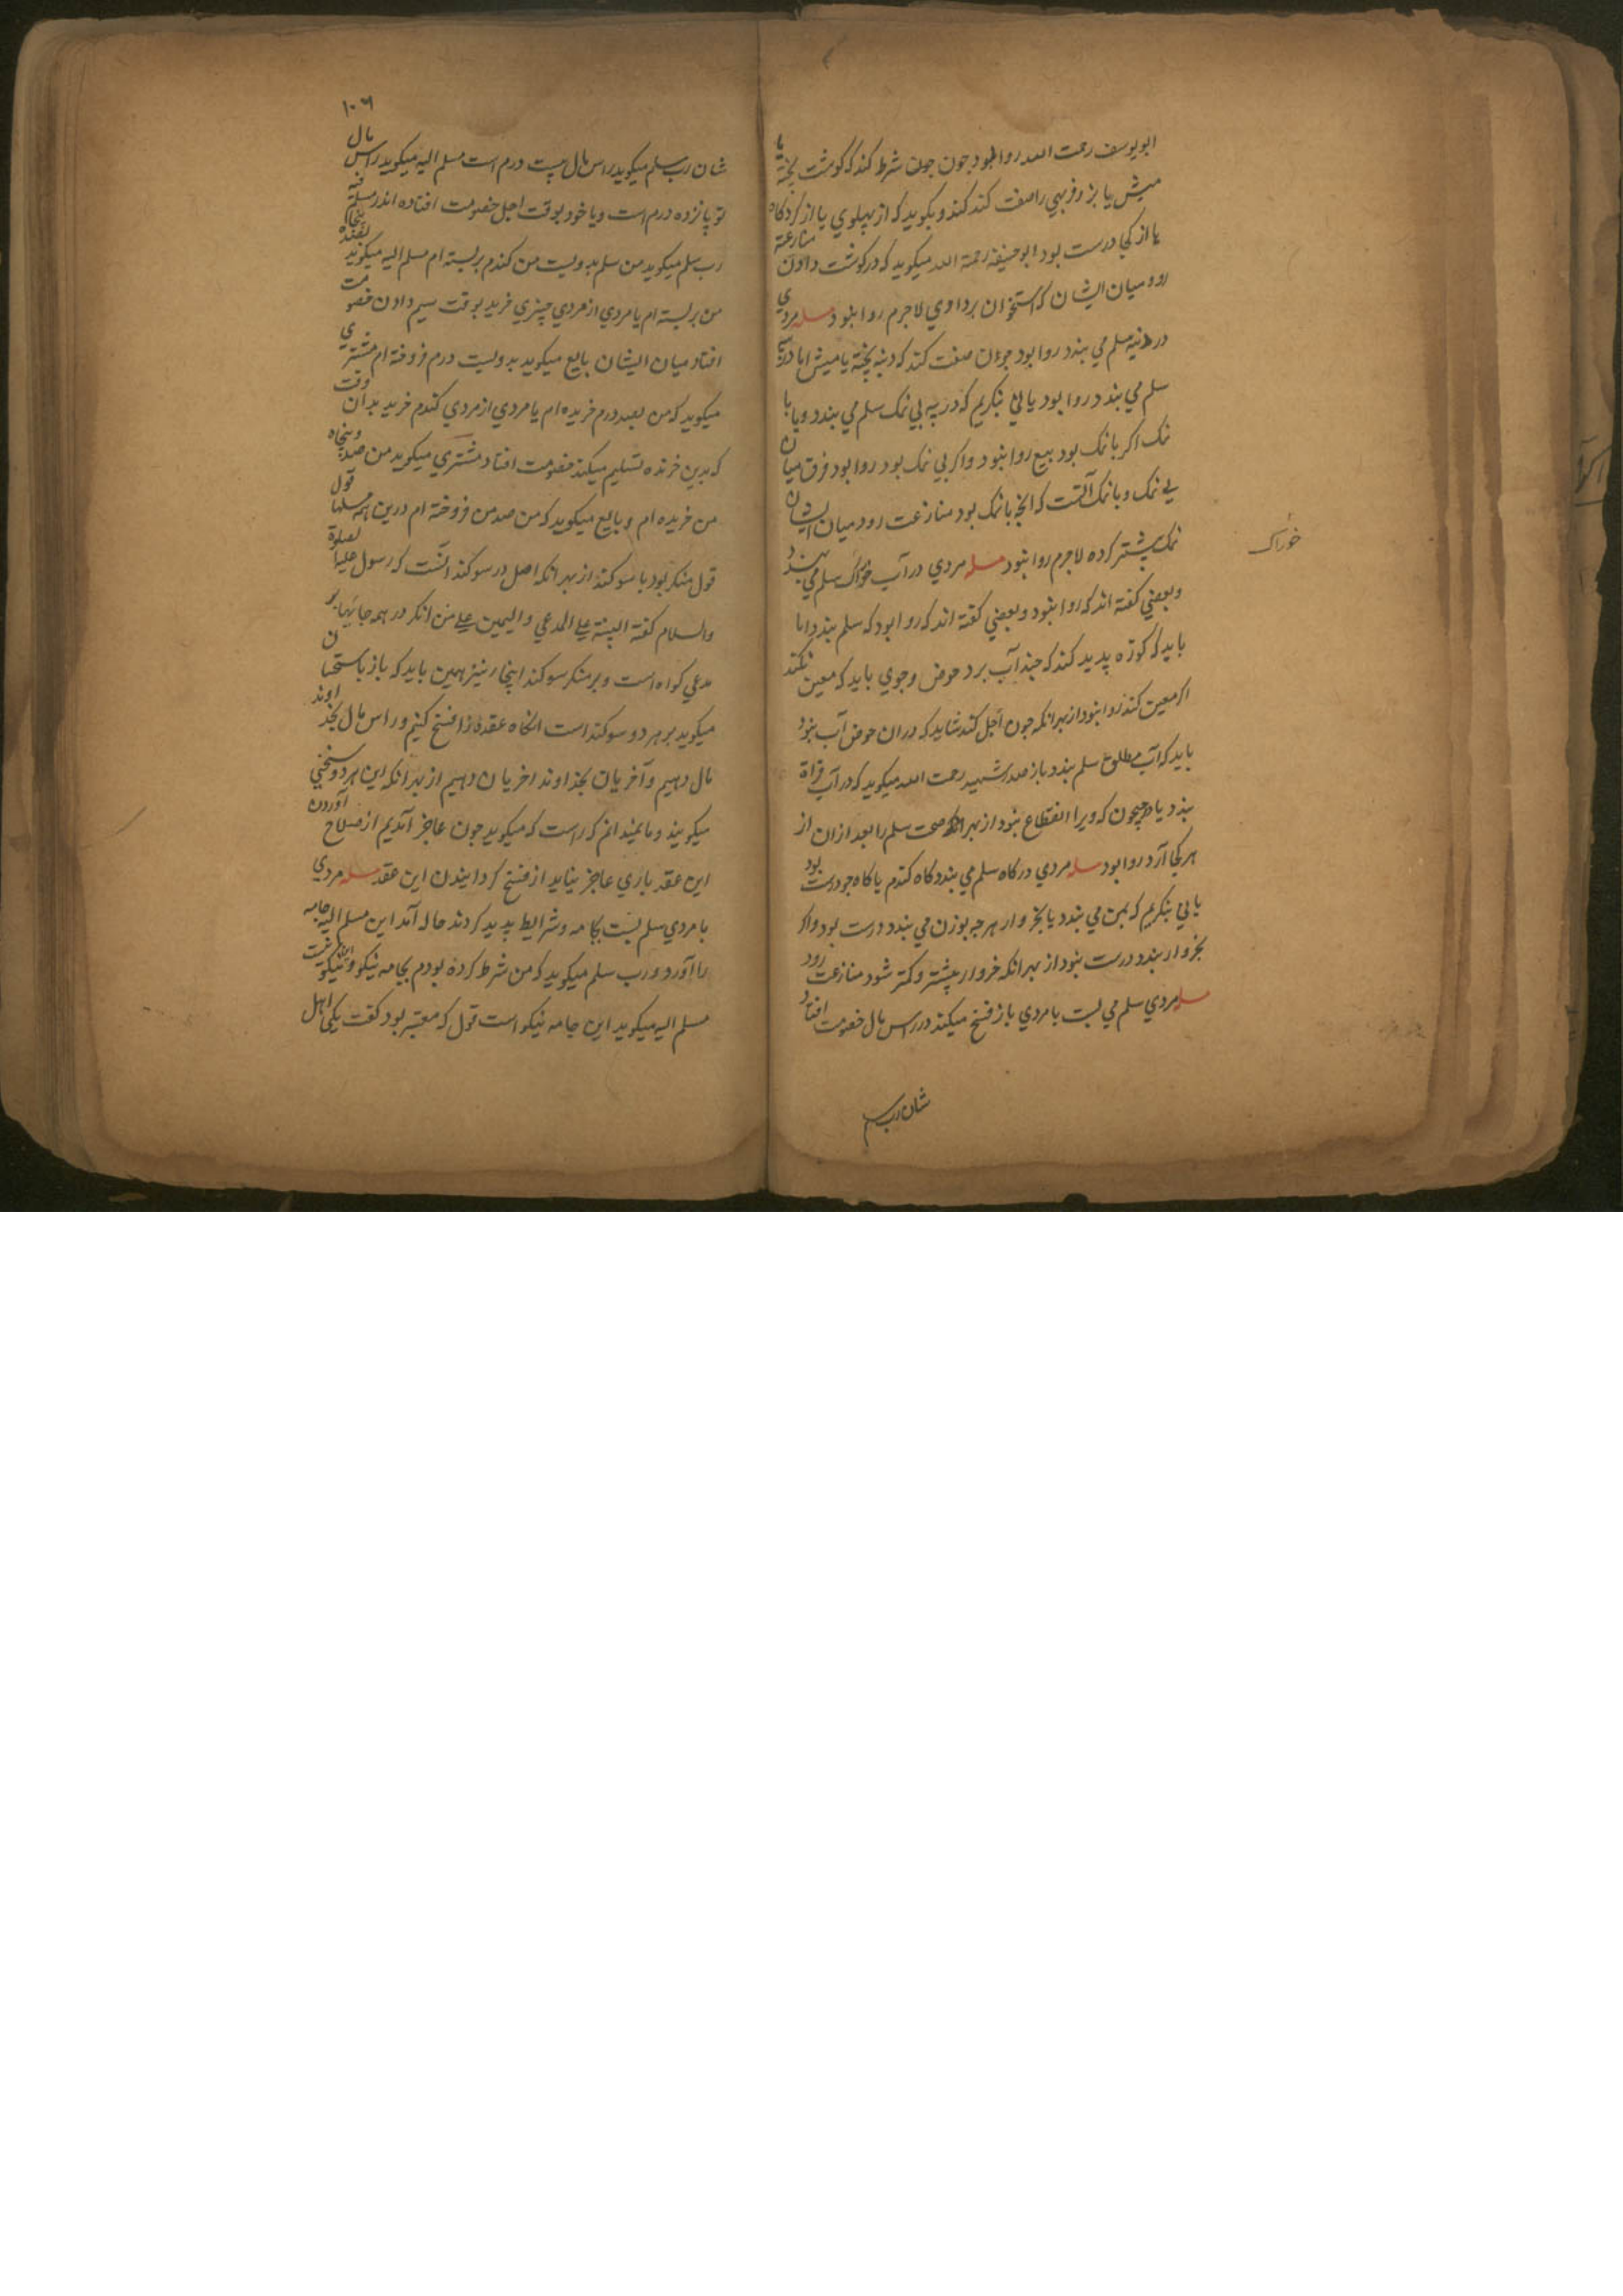 ابو یوسف رحمت الله روا بود چون چون شرط کند که گوشت پخته یا
میش یا بز و فربهی را صفت کند کند و بگوید که از پهلوی یا از گردگاه
یا از کجا درست بود ابو حنیفه رحمة الله میگوید که در گوشت دادن منازعة
رود میان ایشان که استخوان برداوی لاجرم روا نبود مسله مردی
در دنبه سلم می بندد روا بود چون صفت کند که دنبه پخته یا میش اما در پیه
سلم می بندد روا بود یا نی بنگریم که در پیه بی نمک سلم می بندد و یا با
نمک اکر با نمک بود بیع روا نبود و اکر بی نمک بود روا بود فرق میان
بی نمک و با نمک آنست که انچه با نمک بود منازعت رود میان ایشان
نمک پیشتر کرده لاجرم روا نبود مسله مردی در آب خوراک سلم می بندد
و بعضی کفته اند که روا نبود و بعضی کفته اند که روا بود که سلم بندد اما
باید که کوزه پدید کند که چند آب برد حوض و جوی باید که معین نکند
اکر معین کند روا نبود از بهر انکه چون اجل کند شاید که دران حوض آب نبود
باید که آب مطلوع سلم بندد باز صدر شهید رحمت الله میگوید که در آب فراة
بندد یا در جیحون که ویرا انقطاع نبود از بهر انکه صحت سلم را بعد ازان از
هر کجا آرد روا بود مسله مردی در کاه سلم می بندد کاه کندم یا کاه جو درست بود
یا نی بنگریم که بمن می بندد یا بخروار هرچه بوزن می بندد درست بود و اکر
بخروار بندد درست نبود از بهر انکه خروار بیشتر و کمتر شود منازعت رود
مسله مردی سلم می بست با مردی باز فسخ میکند در راس مال خصومت افتاد
شان رب سلم
خوراک
۱۰۶
شان رب سلم میگوید راس مال بیست درم است مسلم الیه میگوید راس مال
تو پانزده درم است و یا خود بوقت اجل خصومت افتاده اندر مسلم فیه
رب سلم میگوید من سلم بدویست من کندم بر بسته ام مسلم الیه میگوید
من بر بسته ام یا مردی از مردی چیزی خرید بوقت سیم دادن خصومت
افتاد میان ایشان بایع میگوید بدویست درم فروخته ام مشتری
میگوید که من بصد درم خریده ام یا مردی از مردی کندم خرید بدان وقت
که بدین خرنده تسلیم میکند خصومت افتاد مشتری میگوید من صد و پنجاه
من خریده ام و بایع میگوید که من صد من فروخته ام درین همه مسلها قول
قول منکر بود با سوکند از بهر انکه اصل در سوکند انست که رسول علیه الصلوة
والسلام کفته البینة علی المدعی والیمین علی من انکر در همه جایها بر
مدعی کواه است و بر منکر سوکند اینجا نیز همین باید که باز باستحسان
میگوید بر هر دو سوکند است انکاه عقده را فسخ کنیم و راس مال بخداوند
مال دهیم و آخریان بخداوند اخریان دهیم از بهر انکه این هر دو سخنی
میکویند و ما نمیدانم که راست که میکوید چون عاجز آمدیم از صلاح آوردن
این عقد باری عاجز نیاید از فسخ کردانیدن این عقد مسله مردی
با مردی سلم بست بجامه و شرایط پدید کردند حاله آمد این مسلم الیه جامه
را آورد و رب سلم میگوید که من شرط کرده بودم بجامه نیکو و این نیکو نیست
مسلم الیه میگوید این جامه نیکو است قول که معتبر بود کفت یکی اهل